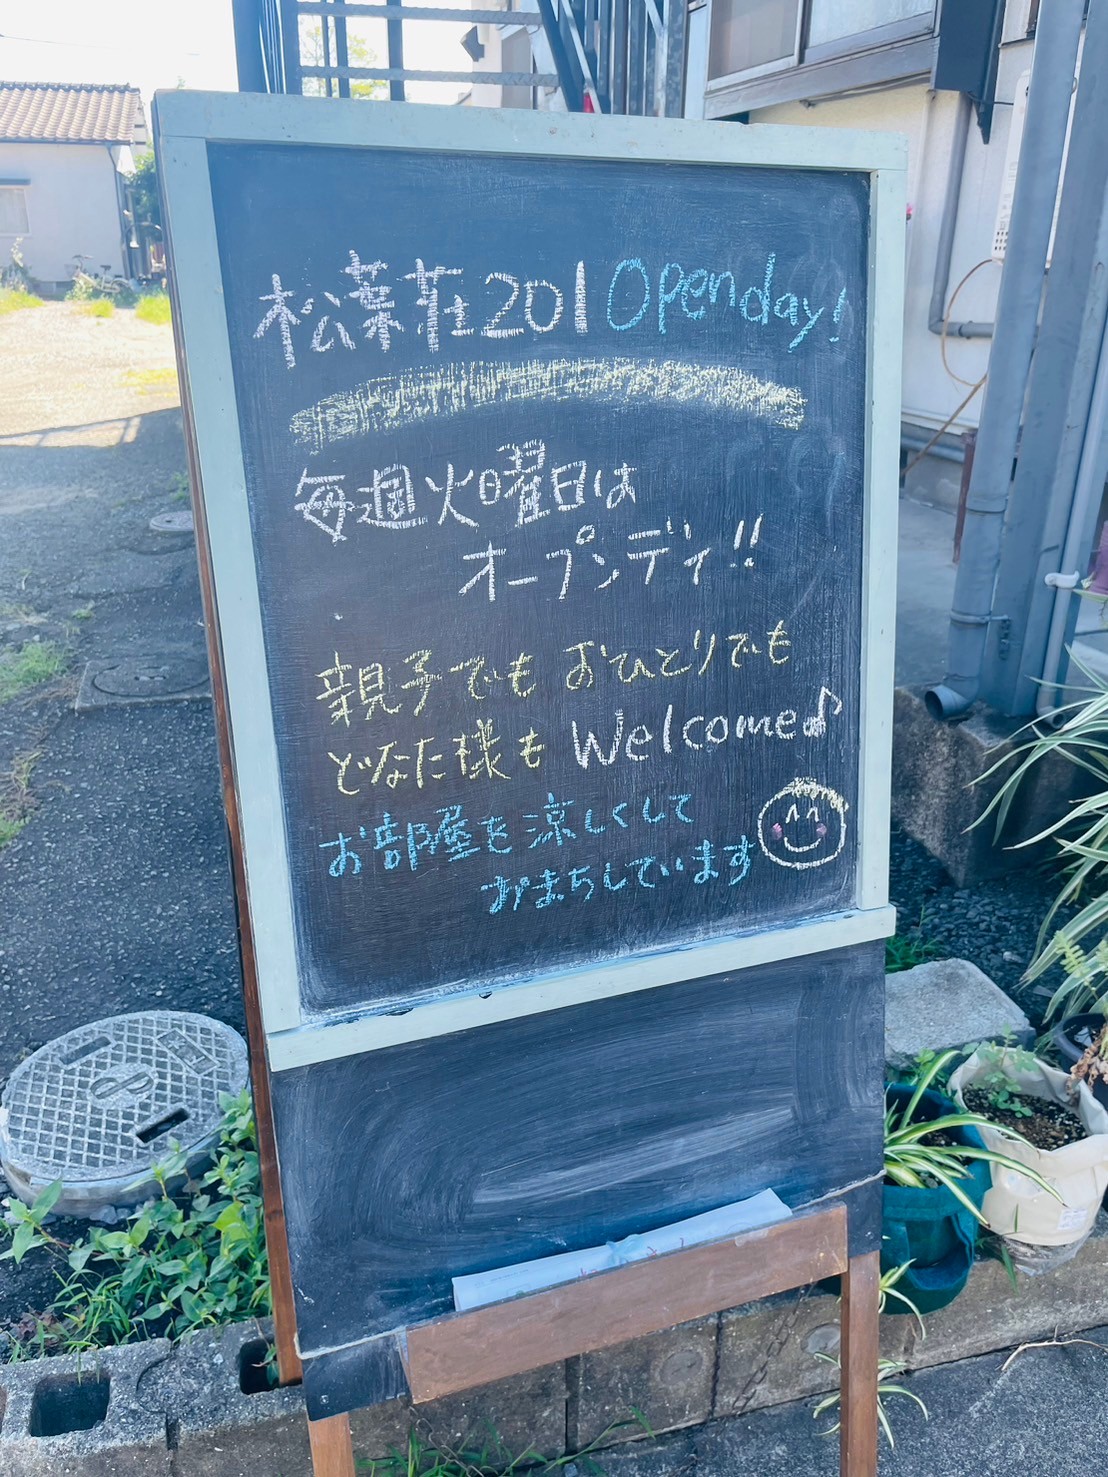 松葉荘201 Openday!
毎週火曜日は
オープンディ!!
親子でも おひとりでも
どなた様も Welcome♪
お部屋を涼しくして
おまちしています